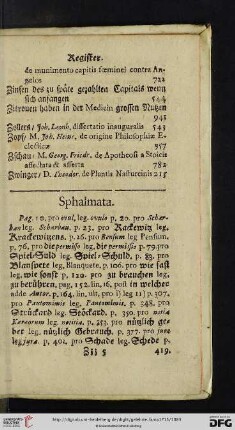 Register.
de munimento capitis fœminei contra An-
gelos 722
Zinsen des zu späte gezahlten Capitals wenn
sich anfangen 544
Zitronen haben in der Medicin grossen Nutzen
941
Zollers/ Joh. Leonh. dissertatio inauguralis 543
Zopf/ M. Joh. Heinr. de origine Philosophiæ E-
clecticæ 957
Zschau/ M. Georg. Friedr. de Apotheosi a Stoicis
affectata & asserta 782
Zwinger/ D. Theodor. de Plantis Nasturcinis 215
Sphalmata.
Pag. 18. pro evul, leg. ovulo p. 20. pro Schar-
bau leg. Scharbau. p. 23. pro Rackewitz leg.
Krackewitzens. p. 26. pro Bensum leg Pensum.
p. 76, pro die permisso leg. die permissis p. 79. pro
Spiel-Sold leg. Spiel-Schuld. p. 83. pro
Blanspete leg. Blanquete. p. 106. pro wie fast
leg. wie sonst p. 120. pro zu brauchen leg.
zu berühren, pag. 152. lin. 16. post in welcher
adde Autor. p. 164. lin. ult, pro i) leg 11] p. 307.
pro Pantomimie leg. Pantomimis. p. 348. pro
Strückard leg. Stöckard. p. 350. pro notia
Kareorum leg. notitia. p. 353. pro nützlich ge-
ber leg. nützlich Gebrauch. p. 377. pro jure
leg. jura. p. 401. pro Schade leg. Schede p.
Iii 5 419.
DFG